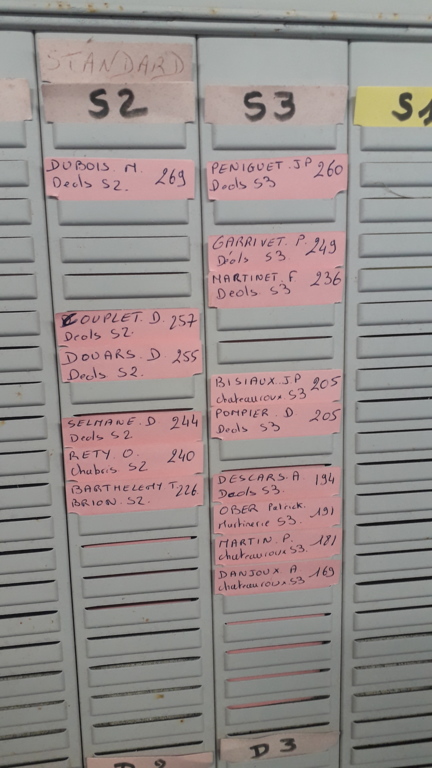 STANDARD
S2
DUBOIS. M.
Deols S2. 269
COUPLET. D. 257
Deols S2.
DOUARS. D 255
Deols S2.
SELMANE. D. 244
Deols S2
RETY. O. 240
Chabris S2
BARTHELEMY. T. 226
BRION. S2.
D 2
S3
PENIGUET. J.P 260
Deols S3
GARRIVET. P. 249
Déols S3
MARTINET. F 236
Deols. S3
BISIAUX. J.P 205
chateauroux S3
POMPIER. D. 205
Deols S3
DESCARS. A. 194
Deols S3.
OBER Patrick. 191
Martinerie S3.
MARTIN. P. 181
chateauroux S3.
DANJOUX. A 169
chateauroux S3
D 3
S1